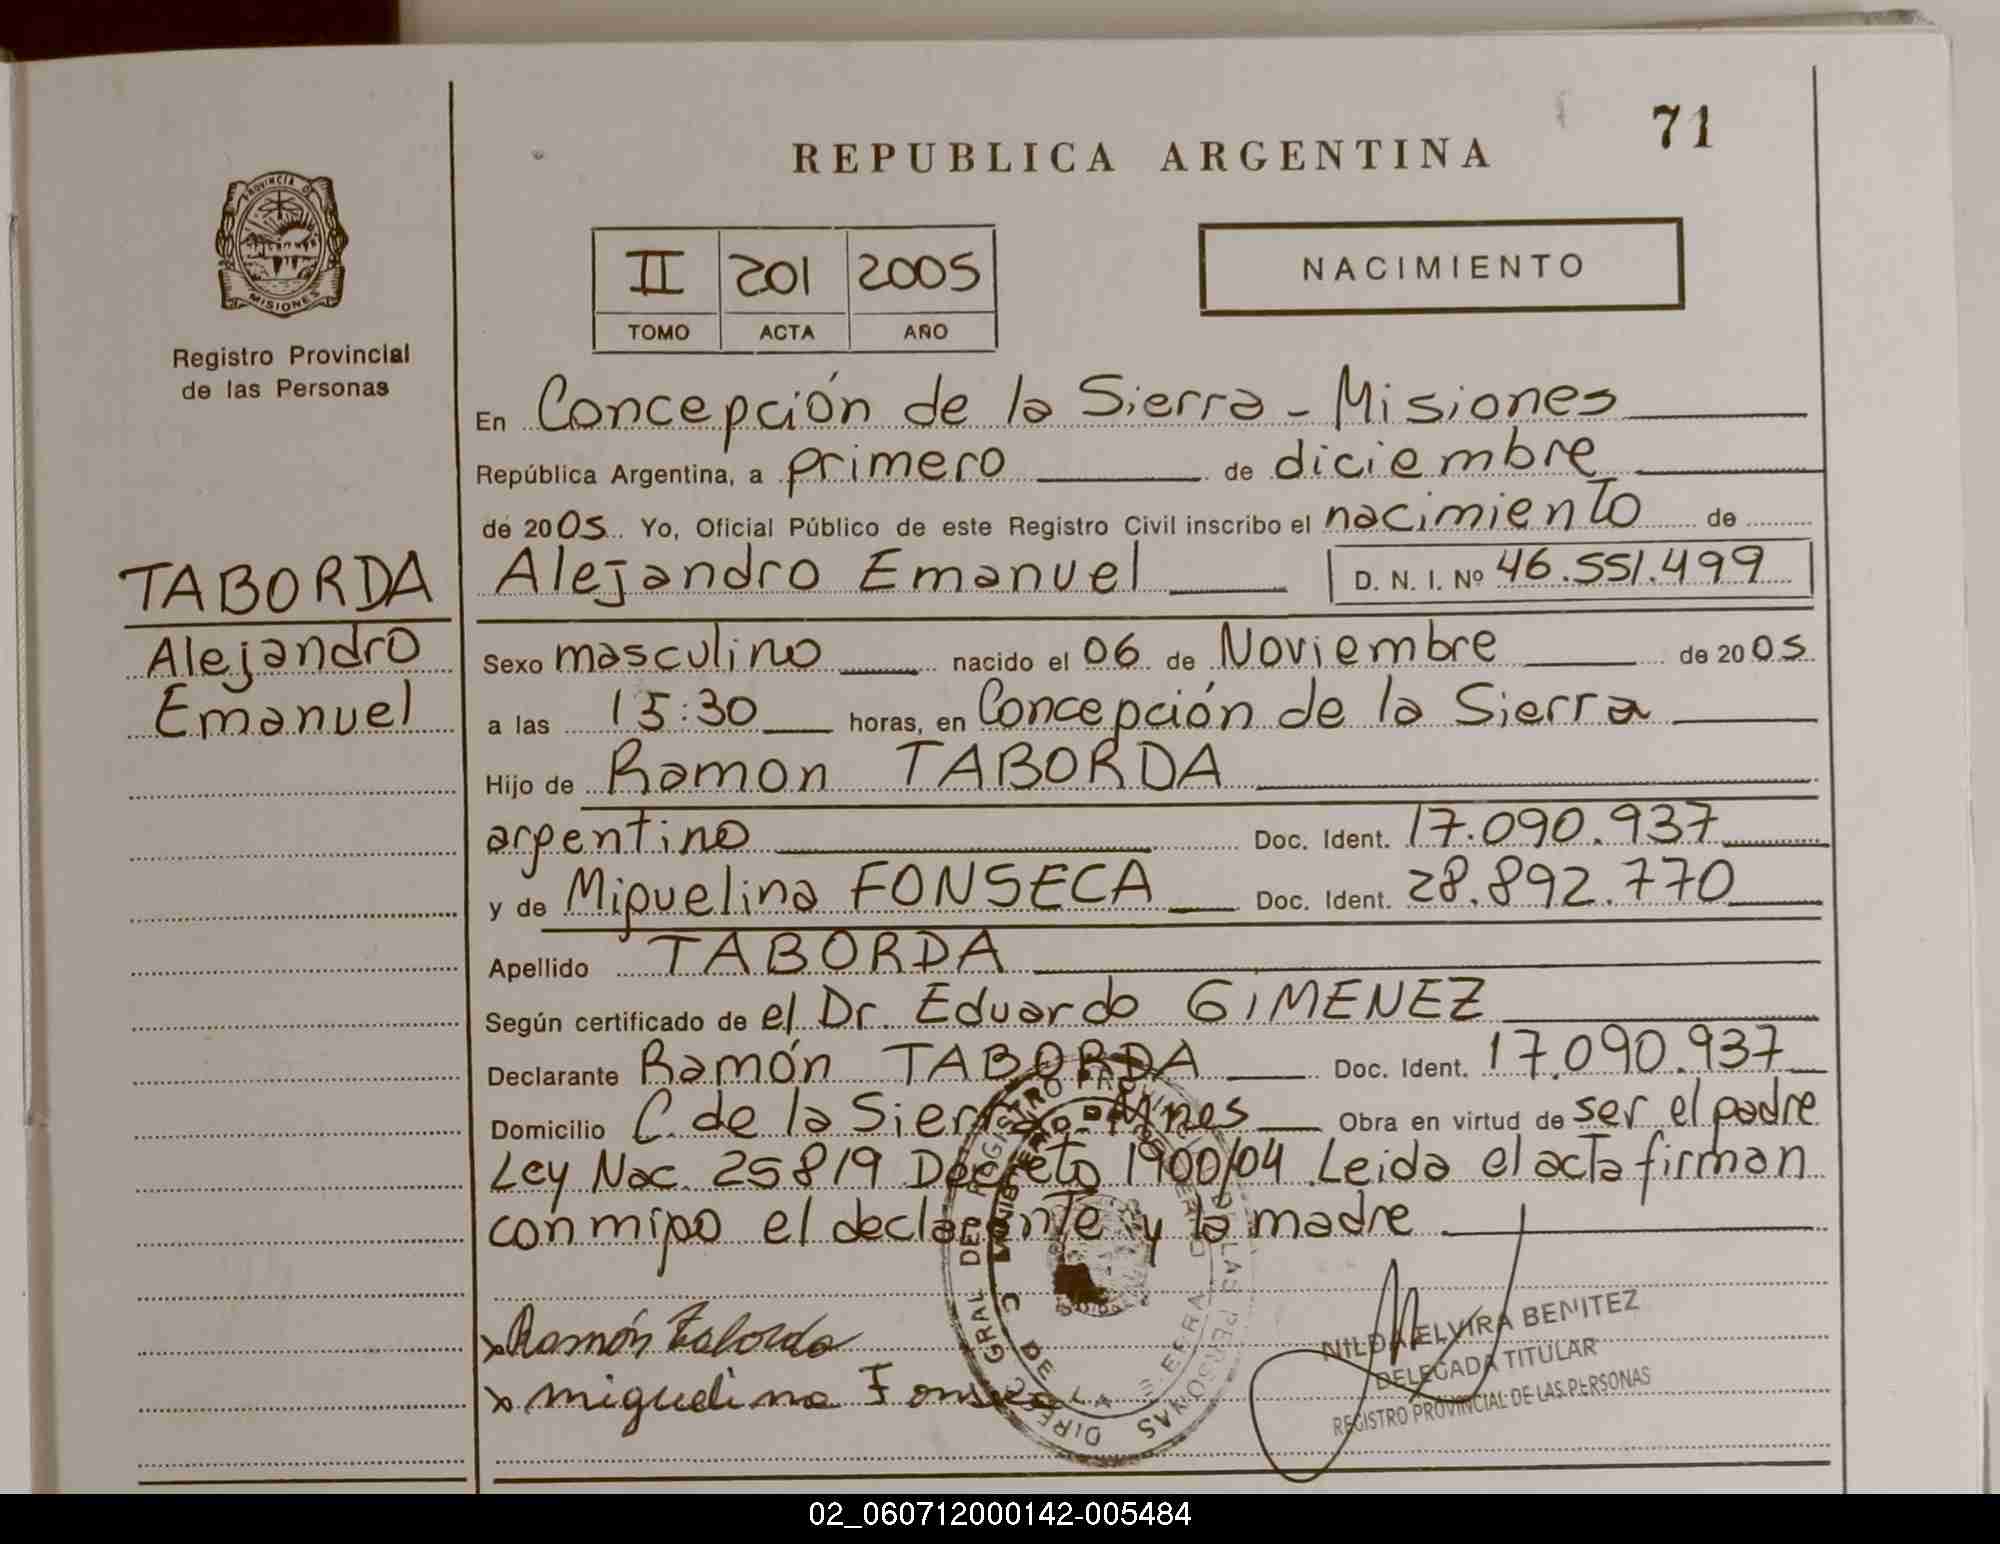 71
REPUBLICA ARGENTINA
PROVINCIA DE
MISIONES
Registro Provincial
de las Personas
II 201 2005
TOMO ACTA AÑO
NACIMIENTO
En Concepción de la Sierra - Misiones
República Argentina, a primero de diciembre
de 2005 Yo, Oficial Público de este Registro Civil inscribo el nacimiento de
TABORDA
Alejandro
Emanuel
Alejandro Emanuel D. N. I. Nº 46.551.499
Sexo masculino nacido el 06 de Noviembre de 2005
a las 15:30 horas, en Concepción de la Sierra
Hijo de Ramon TABORDA
argentino Doc. Ident. 17.090.937
y de Miguelina FONSECA Doc. Ident. 28.892.770
Apellido TABORDA
Según certificado de el Dr. Eduardo GIMENEZ
Declarante Ramón TABORDA Doc. Ident. 17.090.937
Domicilio C. de la Sierra - Mnes Obra en virtud de ser el padre
Ley Nac. 25819 Decreto 1900/04 Leida el acta firman
conmigo el declarante y la madre
Ramón Taborda
miguelina Fonseca
NILDA ELVIRA BENITEZ
DELEGADA TITULAR
REGISTRO PROVINCIAL DE LAS PERSONAS
02_060712000142-005484